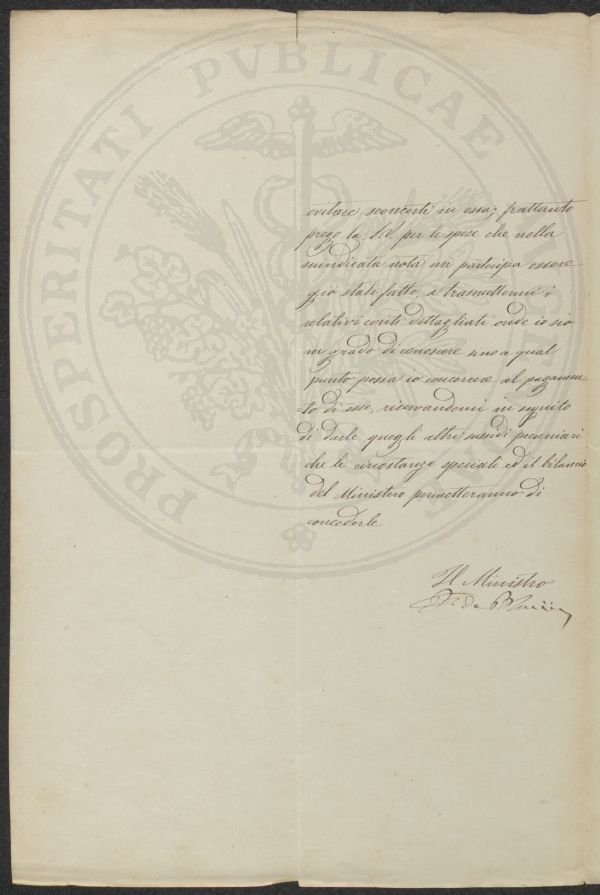 PROSPERITATI PVBLICAE
evitare sconcerti in essa; frattanto
prego la S.V. per le spese che nella
suindicata nota mi partecipa essere
già state fatte, a trasmettermi i
relativi conti dettagliati onde io sia
in grado di conoscere sino a qual
punto possa io concorrere al pagamen-
to di esse, riservandomi in seguito
di darle quegli altri sussidi pecuniari
che le circostanze speciali ed il bilancio
del Ministero permetteranno di
concederle
Il Ministro
F. de